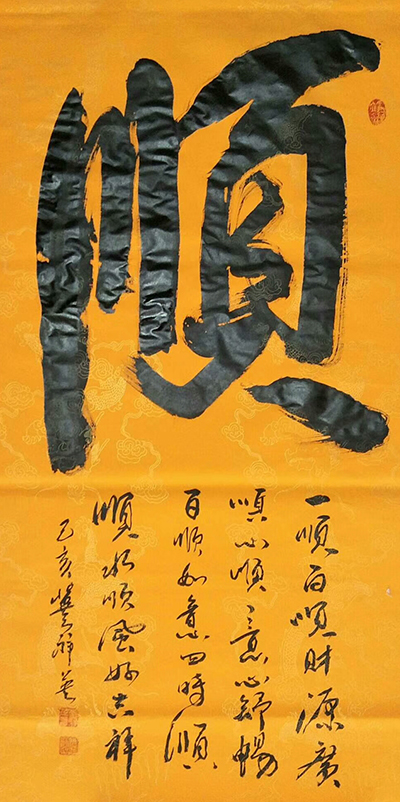 順
一順百順财源廣
順心順意心舒暢
百順如意四時順
順水順風好吉祥
己亥